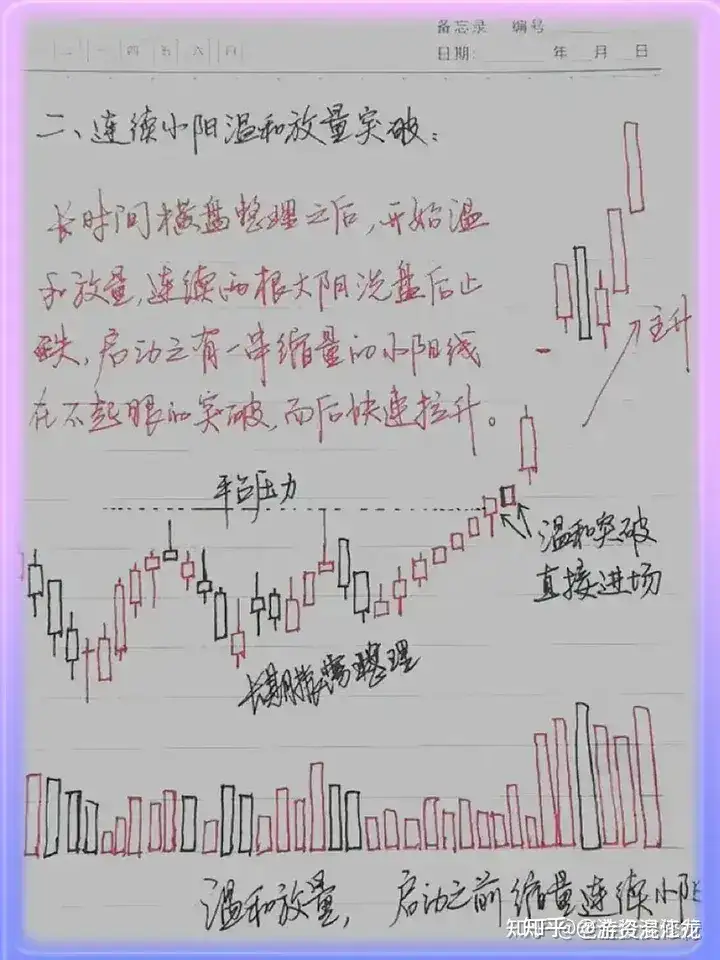 备忘录 编号
二 四 五 六 日
日期: 年 月 日
二、连续小阳温和放量突破:
长时间横盘整理之后,开始温
和放量,连续两根大阴洗盘后止
跌,启动之有一串缩量的小阳线
在不起眼的突破,而后快速拉升。
主升
平台压力
温和突破
直接进场
长期震荡整理
温和放量, 启动之前缩量连续小阳
知乎 @游资混江龙